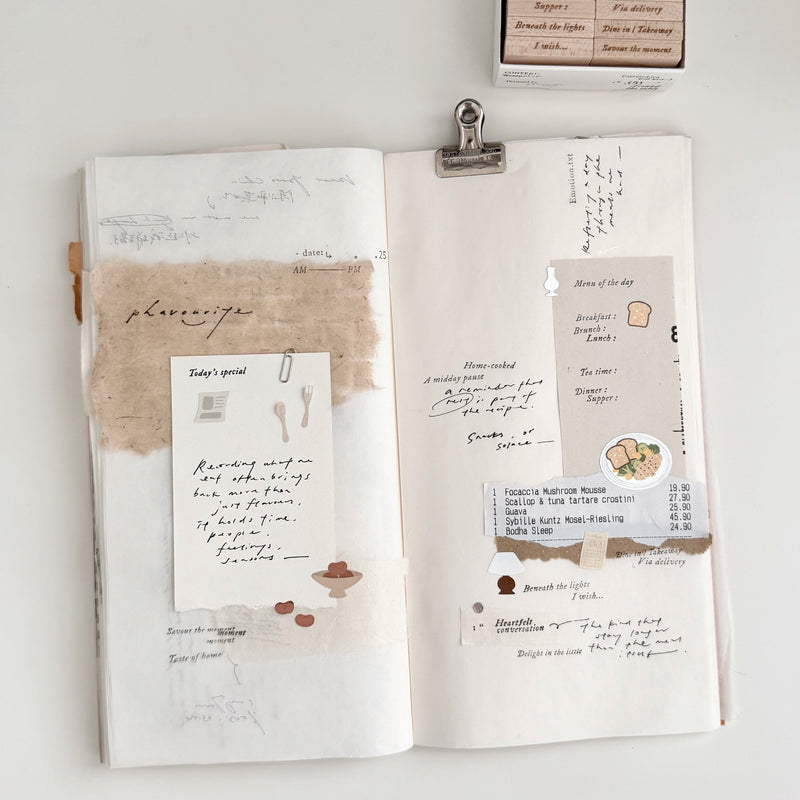 Supper :
Via delivery
Beneath the lights
Dine in / Takeaway
I wish...
Savour the moment
- date:
.25
AM PM
phavourite
Today's special
Recording what we
eat often brings
back more than
just flavours.
it holds time,
people,
feelings,
seasons —
Savour the moment
moment
moment
Taste of home
Emotion.txt
a day
through the
meals we
had —
Menu of the day
Breakfast :
Brunch :
Lunch :
Tea time :
Dinner :
Supper :
Home-cooked
A midday pause
a reminder that
rest is part of
the recipe.
Snacks, or
solace —
1 Focaccia Mushroom Mousse 19.90
1 Scallop & tuna tartare crostini 27.90
1 Guava 25.90
1 Sybille Kuntz Mosel-Riesling 45.90
1 Bodha Sleep 24.90
Dine in / Takeaway
Via delivery
Beneath the lights
I wish...
:" Heartfelt
conversation
the kind that
stay longer
than the meal
itself.
Delight in the little